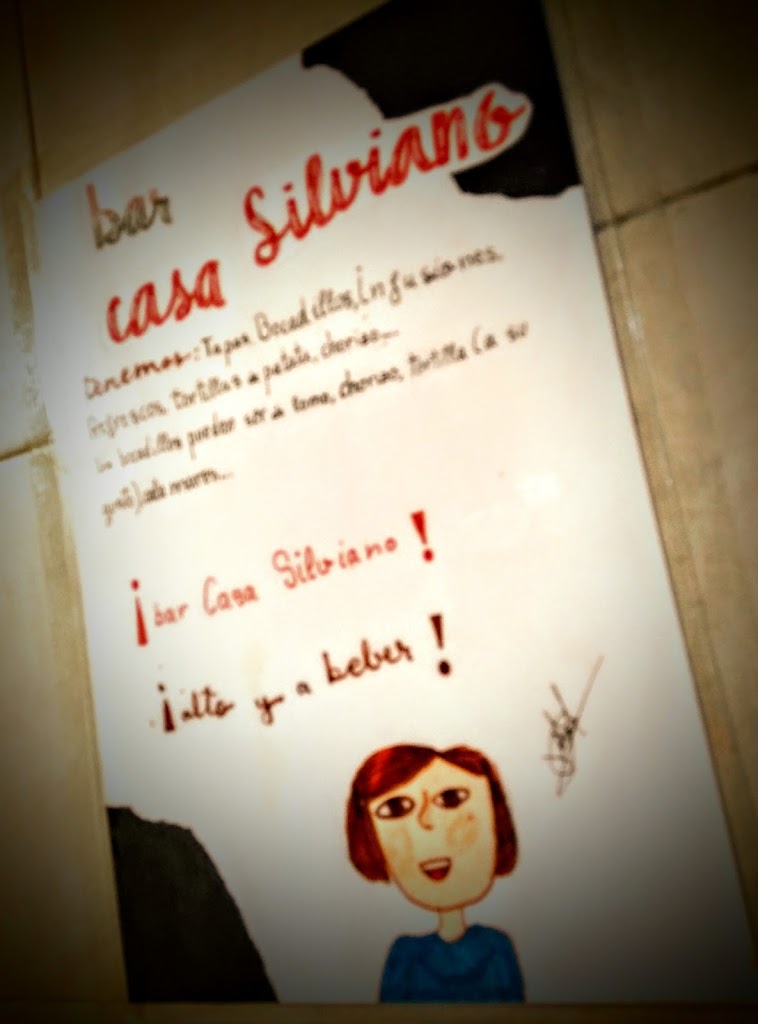 bar
casa Silviano
Tenemos: Tapas Bocadillos, infusiones.
Refrescos, tortillas de patata, chorizo...
los bocadillos pueden ser de lomo, chorizo, tortilla (a su
gusto),
¡bar Casa Silviano!
¡alto y a beber!